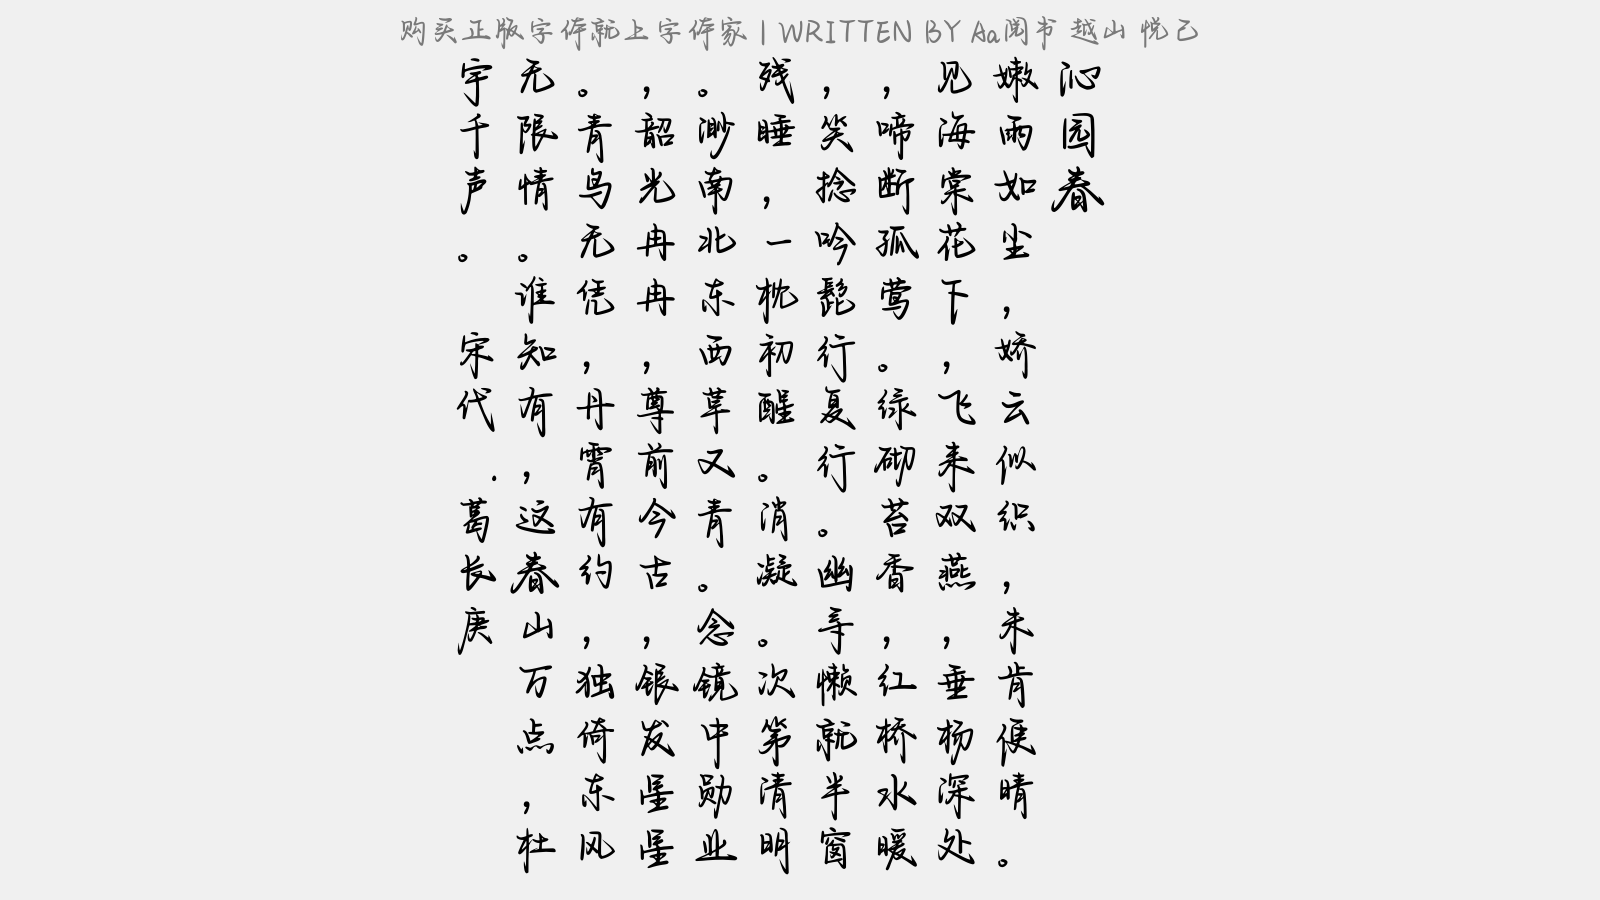 购买正版字体就上字体家 | WRITTEN BY Aa阅书 越山 悦己
沁园春
嫩雨如尘，娇云似织，未肯便晴。
见海棠花下，飞来双燕，垂杨深处
，啼断孤莺。绿砌苔香，红桥水暖
，笑捻吟髭行复行。幽寻懒就半窗
残睡，一枕初醒。消凝。次第清明
。渺南北东西草又青。念镜中勋业
，韶光冉冉，尊前今古，银发星星
。青鸟无凭，丹霄有约，独倚东风
无限情。谁知有，这春山万点，杜
宇千声。 宋代.葛长庚